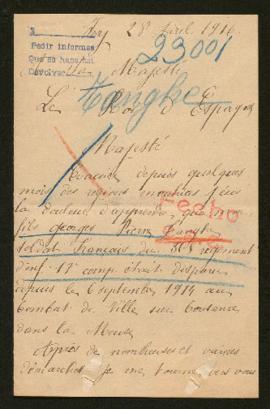 Ay 28 Avril 1916
23001
Pedir informes
Que se haga
Devolver
Sa Majesté
Le Roi d'Espagne
Tanghe
Majesté
Évacué depuis quelques
mois des régions envahies j'ai eu
la douleur d'apprendre, que mon
fils Georges Pierre Tanghe
Fecho
soldat français du régiment
d'inf. 17e comp était disparu
depuis le 6 septembre 1914 au
combat de Ville sur Cousance
dans la Meuse
Après de nombreuses et vaines
démarches je me tourne vers vous